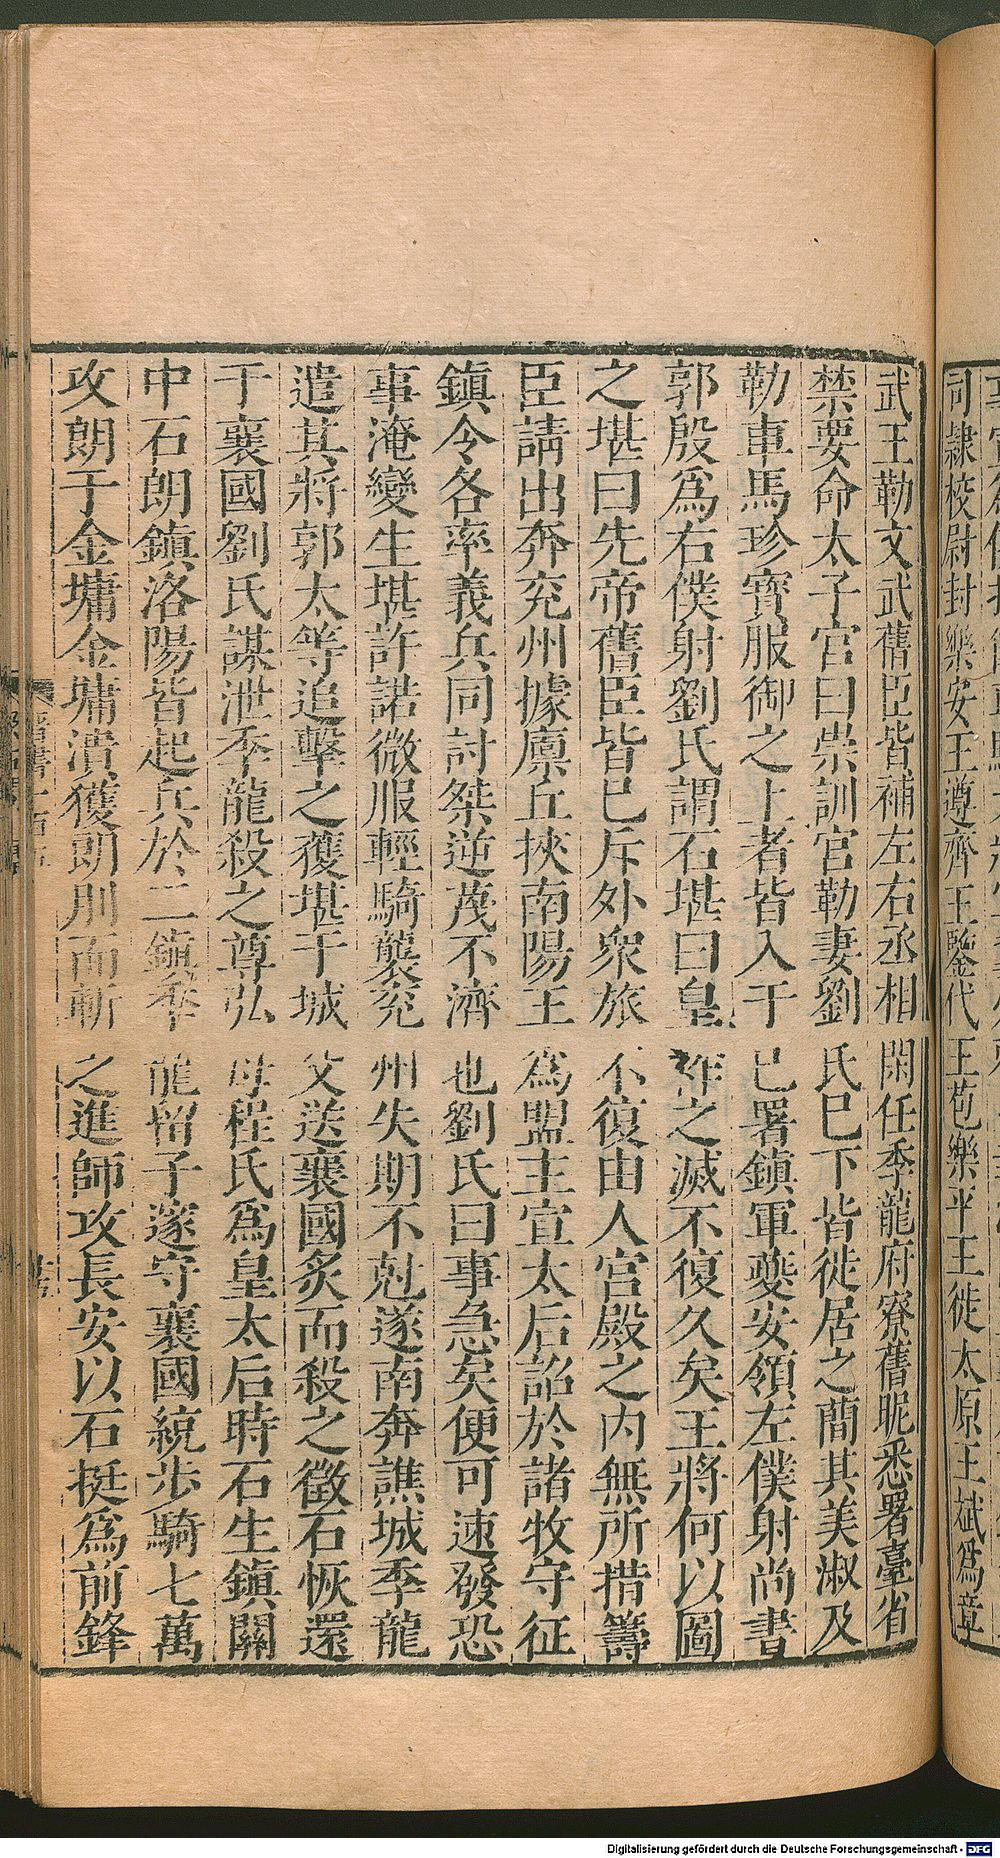 司隸校尉封樂安王遵齊王鑒代王苞樂平王徙太原王斌爲章
武王勒文武舊臣皆補左右丞相閑任季龍府寮舊昵悉署臺省
禁要命太子宮曰崇訓宮勒妻劉氏巳下皆徙居之蕳其美淑及
勒車馬珍寳服御之上者皆入于巳署鎮軍夔安領左僕射尚書
郭殷爲右僕射劉氏謂石堪曰皇祚之滅不復久矣王將何以圖
之堪曰先帝舊臣皆巳斥外衆旅不復由人宮殿之内無所措籌
臣請出奔兖州據廪丘挾南陽王爲盟主宣太后詔於諸牧守征
鎮令各率義兵同討桀逆蔑不濟也劉氏曰事急矣便可速發恐
事淹變生堪許諾微服輕騎襲兖州失期不尅遂南奔譙城季龍
遣其將郭太等追擊之獲堪于城父送襄國炙而殺之徵石恢還
于襄國劉氏謀泄季龍殺之尊弘母程氏爲皇太后時石生鎮關
中石朗鎮洛陽皆起兵於二鎮季龍留子邃守襄國統步騎七萬
攻朗于金墉金墉潰獲朗刖而斬之進師攻長安以石挺爲前鋒
晉書一百五
Digitalisierung gefördert durch die Deutsche Forschungsgemeinschaft - DFG